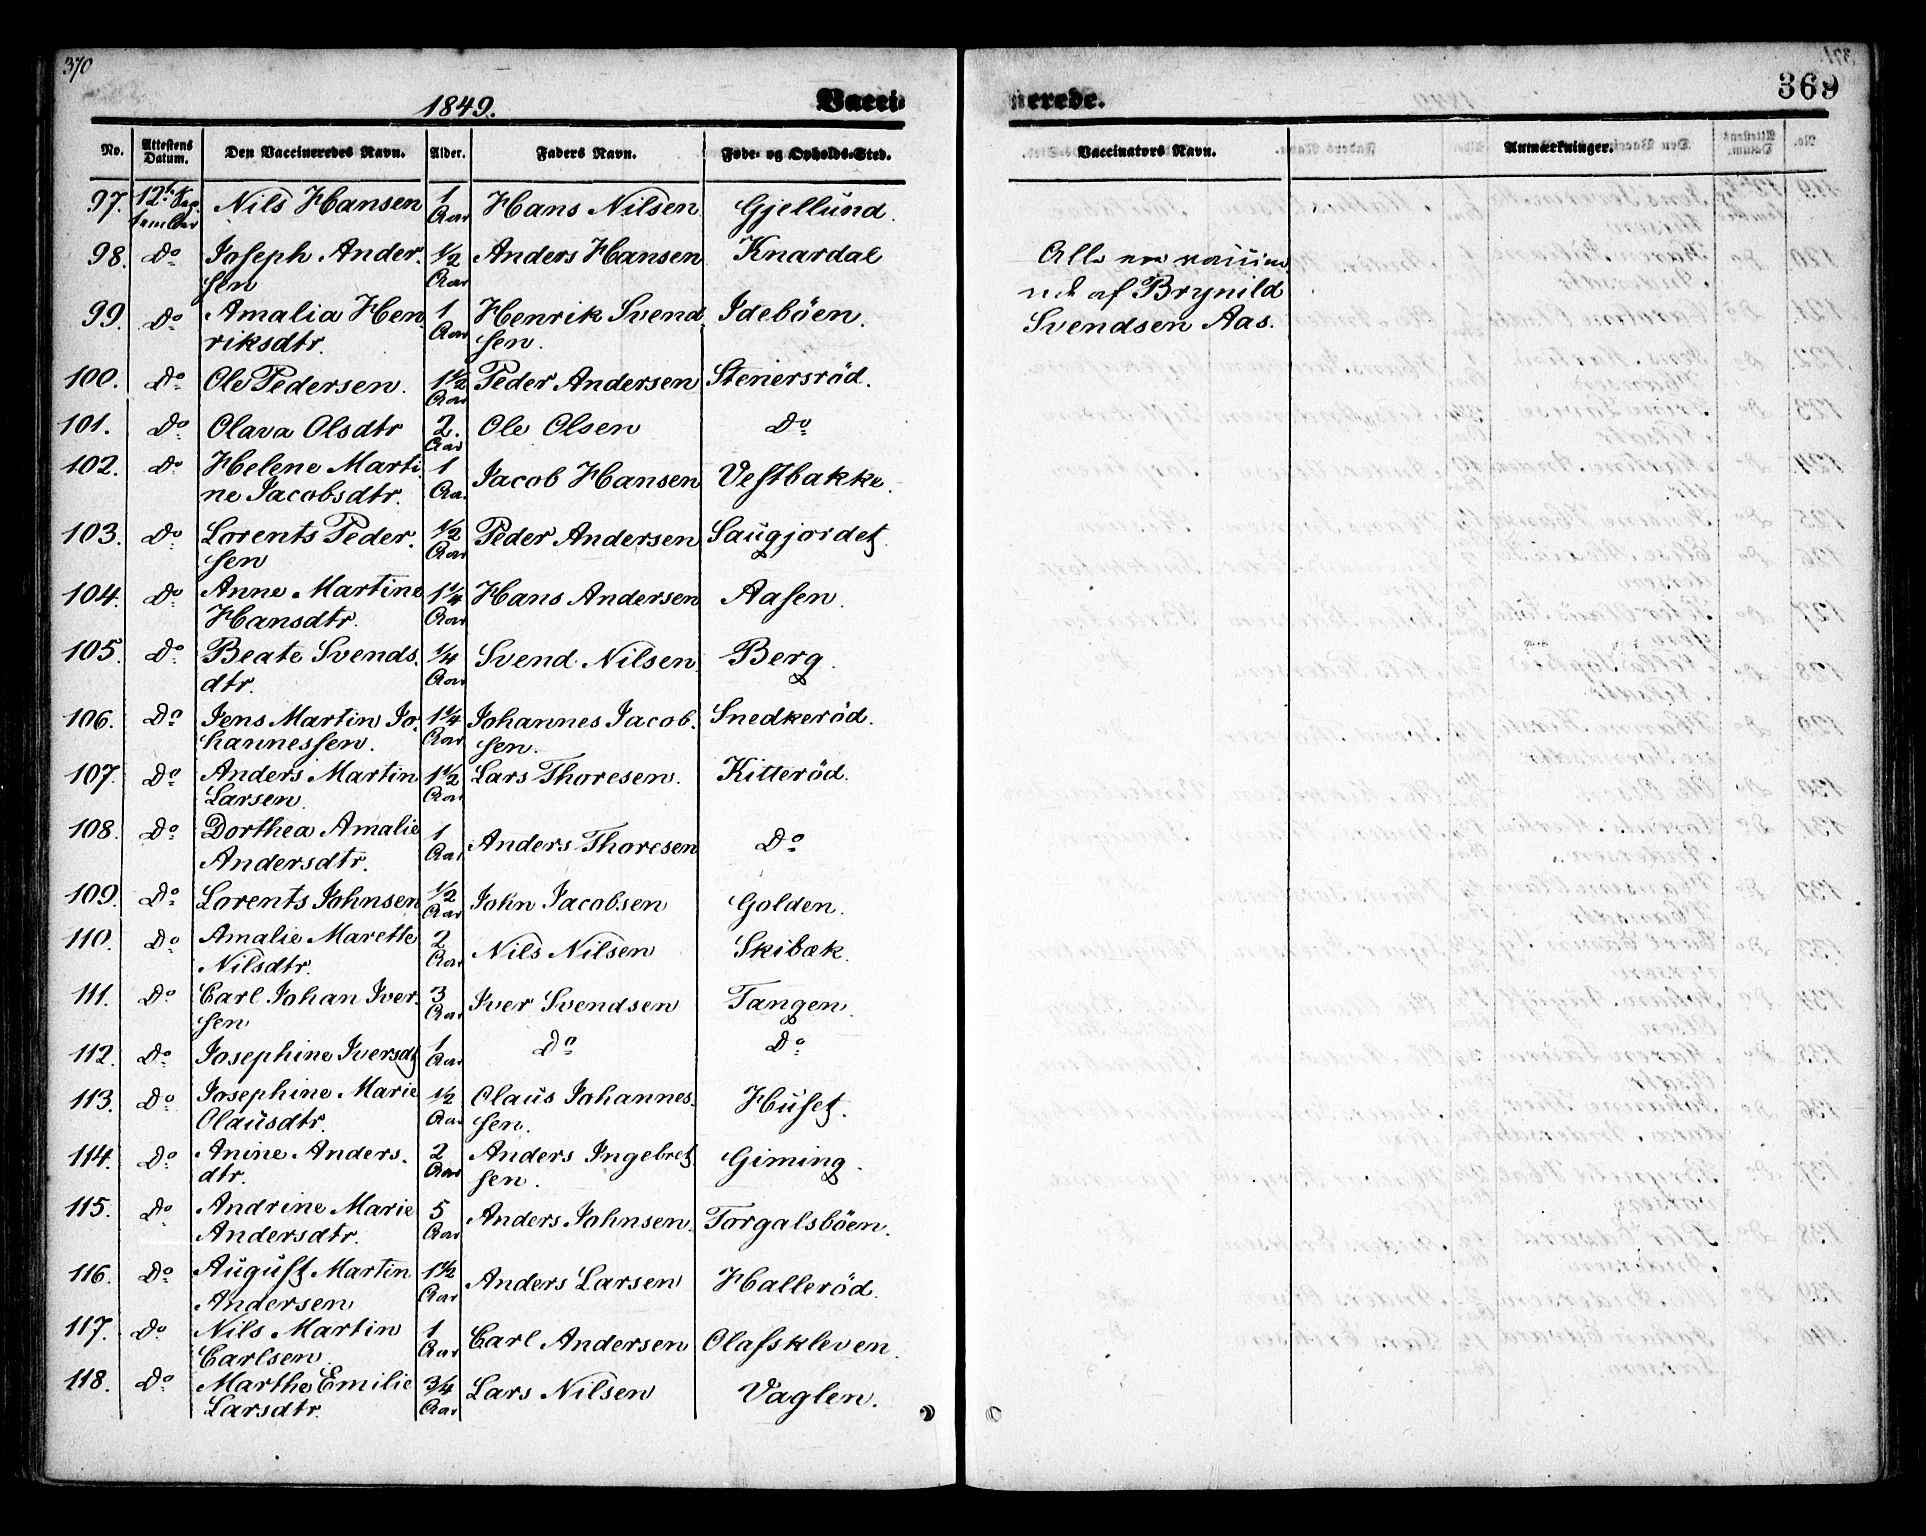 370
1849.
Vacci-
No. Attestens Datum. Den Vaccineredes Navn. Alder. Faders Navn. Føde- og Opholds-Sted.
97. 12te Sep- Nils Hansen 1 Hans Nilsen Gjellund.
tember Aar
98. Do Joseph Ander- 1/2 Anders Hansen Knardal
sen Aar
99. Do Amalia Hen- 1 Henrik Svend- Idebøen.
riksdtr. Aar sen.
100. Do Ole Pedersen. 1 1/2 Peder Andersen Stenersröd.
Aar
101. Do Olava Olsdtr 2. Ole Olsen Do
Aar
102. Do Helene Marti- 1 Jacob Hansen Vestbakke.
ne Jacobsdtr. Aar
103. Do Lorents Peder- 1/2 Peder Andersen Saugjordet
sen Aar
104. Do Anne Martine 1 1/4 Hans Andersen Aasen.
Hansdtr. Aar
105. Do Beate Svends- 1/4 Svend Nilsen Berg.
dtr. Aar
106. Do Jens Martin Jo- 1 1/4 Johannes Jacob- Snedkeröd.
hannessen. Aar sen.
107. Do Anders Martin 1 1/2 Lars Thoresen. Kitteröd.
Larsen. Aar
108. Do Dorthea Amalie 1 Anders Thoresen Do
Andersdtr. Aar
109. Do Lorents Johnsen 1/2 John Jacobsen Golden.
Aar
110. Do Amalie Marette 2 Nils Nilsen Skibæk.
Nilsdtr. Aar
111. Do Carl Johan Iver- 3 Iver Svendsen Tangen.
sen Aar
112. Do Josephine Iversdt 1 Do Do
Aar
113. Do Josephine Marie 1/2 Olaus Johannes- Huset.
Olausdtr. Aar sen.
114. Do Anine Anders- 2 Anders Ingebret- Giming.
dtr. Aar sen.
115. Do Andrine Marie 5 Anders Johnsen. Torgalsböen.
Andersdtr. Aar
116. Do August Martin 1 1/2 Anders Larsen Halleröd.
Andersen Aar
117. Do Nils Martin 1 Carl Andersen Olafskleven.
Carlsen Aar
118. Do Marthe Emilie 3/4 Lars Nilsen Vaglen.
Larsdtr. Aar
nerede.
369
Vaccinators Navn. Anmærkninger.
Alle
af Brynild
Svendsen Aas.